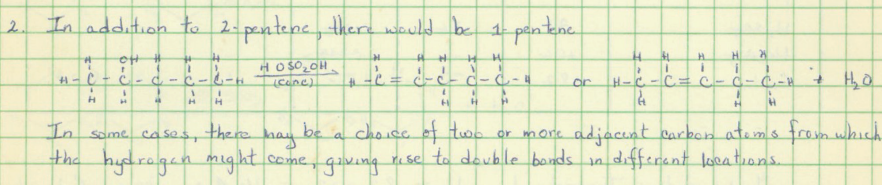 2. In addition to 2-pentene, there would be 1-pentene
H OH H H H H H H H H H H H H H
H-C-C-C-C-C-H HOSO2OH (conc) H-C=C-C-C-C-H or H-C-C=C-C-C-H + H2O
H H H H H H H H H H H
In some cases, there may be a choice of two or more adjacent carbon atoms from which
the hydrogen might come, giving rise to double bonds in different locations.